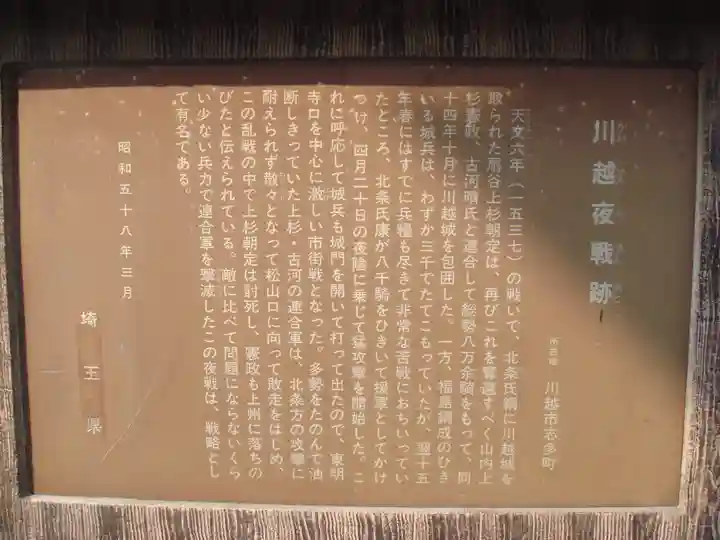 川越夜戦跡
所在地 川越市志多町
天文六年（一五三七）の戦いで、北条氏綱に川越城を
取られた扇谷上杉朝定は、再びこれを奪還すべく山内上
杉憲政、古河晴氏と連合して総勢八万余騎をもって、同
十四年十月に川越城を包囲した。一方、福島綱成のひき
いる城兵は、わずか三千でたてこもっていたが、翌十五
年春にはすでに兵糧も尽きて非常な苦戦におちいってい
たところ、北条氏康が八千騎をひきいて援軍としてかけ
つけ、四月二十日の夜陰に乗じて猛攻撃を開始した。こ
れに呼応して城兵も城門を開いて打って出たので、東明
寺口を中心に激しい市街戦となった。多勢をたのんで油
断しきっていた上杉・古河の連合軍は、北条方の攻撃に
耐えられず散々となって松山口に向って敗走をはじめ、
この乱戦の中で上杉朝定は討死し、憲政も上州に落ちの
びたと伝えられている。敵に比べて問題にならないくら
い少ない兵力で連合軍を撃滅したこの夜戦は、戦略とし
て有名である。
昭和五十八年三月
埼玉県